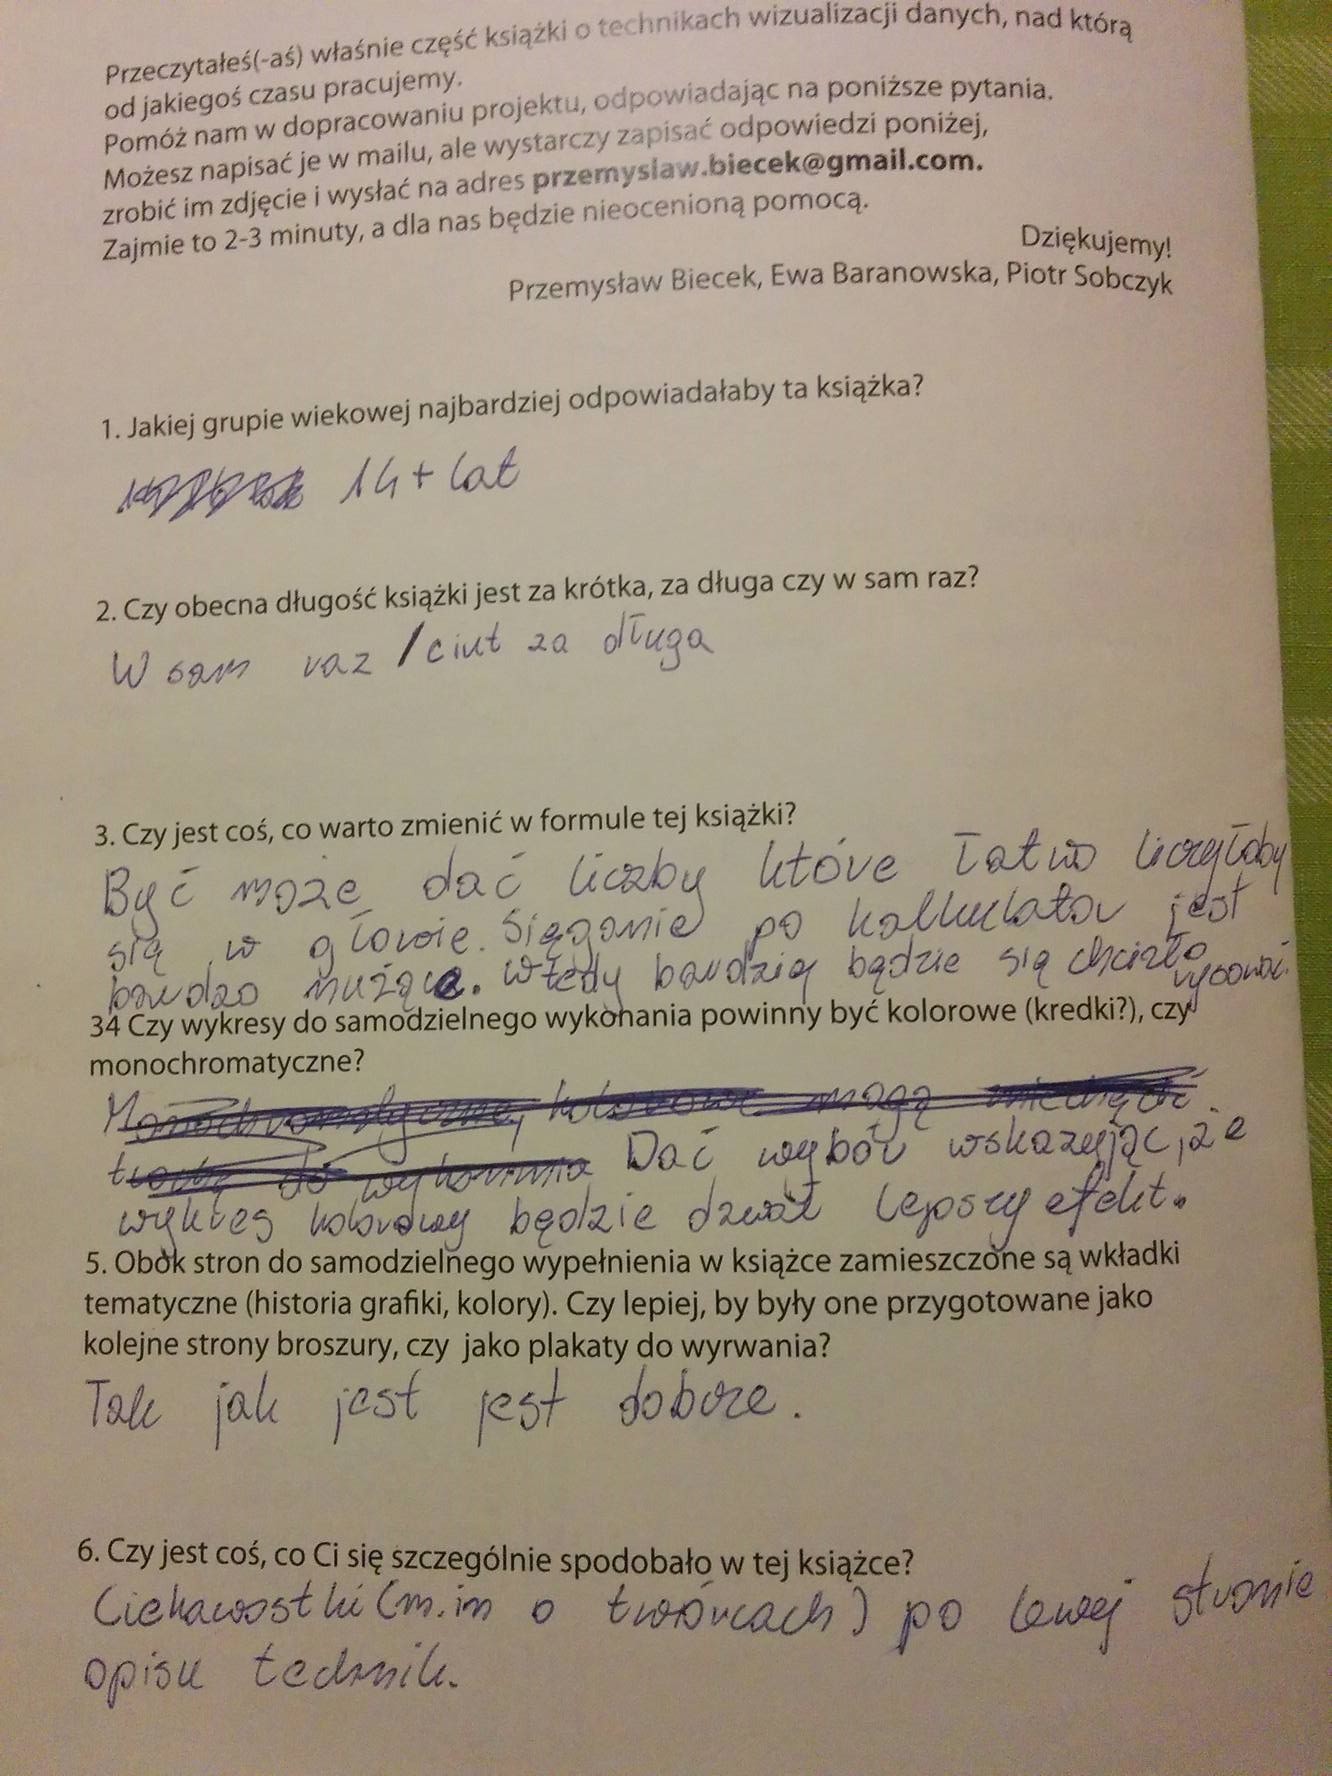 Przeczytałeś(-aś) właśnie część książki o technikach wizualizacji danych, nad którą
od jakiegoś czasu pracujemy.
Pomóż nam w dopracowaniu projektu, odpowiadając na poniższe pytania.
Możesz napisać je w mailu, ale wystarczy zapisać odpowiedzi poniżej,
zrobić im zdjęcie i wysłać na adres przemyslaw.biecek@gmail.com.
Zajmie to 2-3 minuty, a dla nas będzie nieocenioną pomocą.
Dziękujemy!
Przemysław Biecek, Ewa Baranowska, Piotr Sobczyk
1. Jakiej grupie wiekowej najbardziej odpowiadałaby ta książka?
14+ lat
2. Czy obecna długość książki jest za krótka, za długa czy w sam raz?
W sam raz / ciut za długa
3. Czy jest coś, co warto zmienić w formule tej książki?
Być może dać liczby które łatwo liczyłoby
się w głowie. Sięganie po kalkulator jest
bardzo nużące. Wtedy bardziej będzie się chciało
rysować.
34 Czy wykresy do samodzielnego wykonania powinny być kolorowe (kredki?), czy
monochromatyczne?
Monochromatyczne, kolorowe mogą zniechęcić
trochę do wykonania Dać wybór wskazując, że
wykres kolorowy będzie dawał lepszy efekt.
5. Obok stron do samodzielnego wypełnienia w książce zamieszczone są wkładki
tematyczne (historia grafiki, kolory). Czy lepiej, by były one przygotowane jako
kolejne strony broszury, czy jako plakaty do wyrwania?
Tak jak jest jest dobrze.
6. Czy jest coś, co Ci się szczególnie spodobało w tej książce?
Ciekawostki (m.in o twórcach) po lewej stronie
opisu technik.